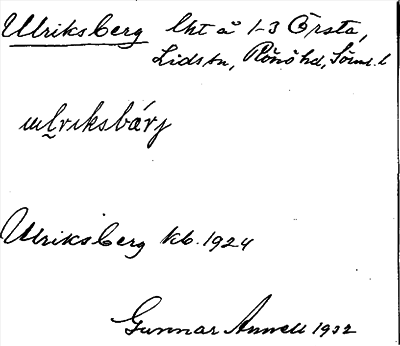 Ulriksberg lht å 1-3 Örsta,
Lids sn, Rönö hd, Söml. l
ɯlriksbárj
Ulriksberg kb. 1924
Gunnar Anwell 1932